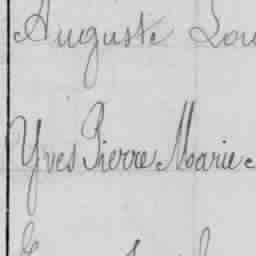 Auguste Lou
Yves Pierre Marie